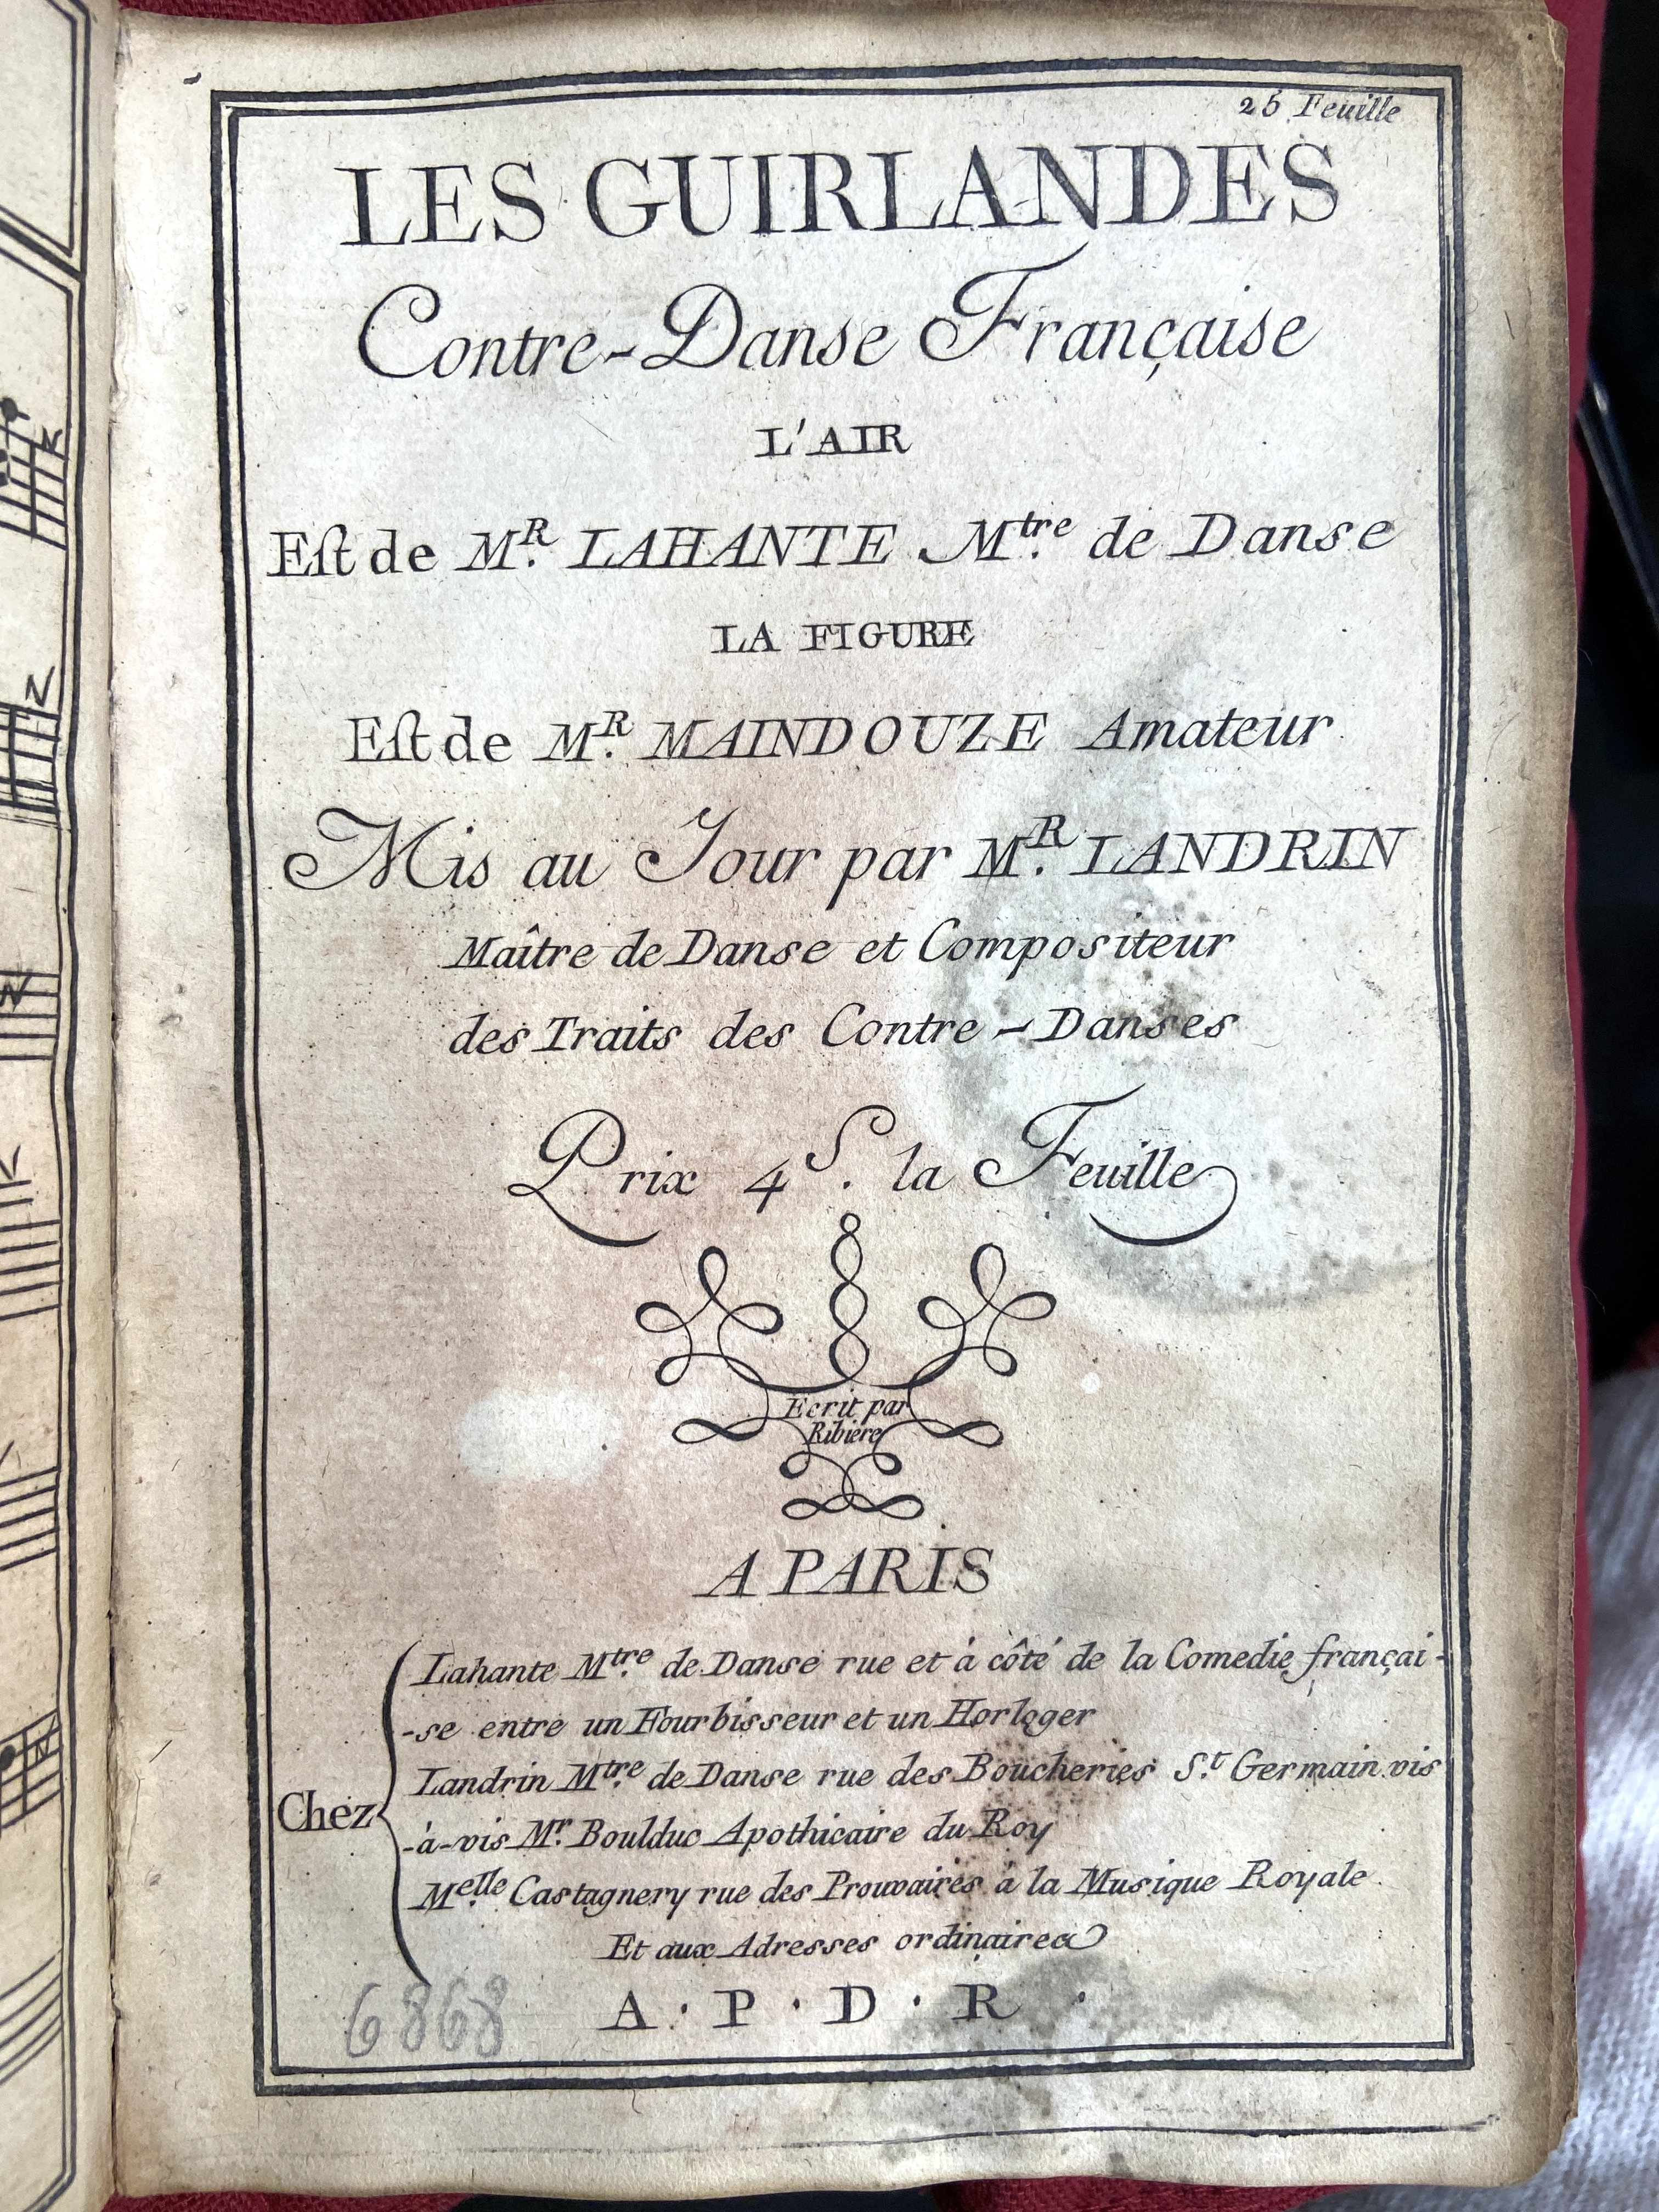 25 Feuille
LES GUIRLANDES
Contre-Danse Française
L'AIR
Eſt de M.R LAHANTE M.tre de Danse
LA FIGURE
Eſt de M.R MAINDOUZE Amateur
Mis au Jour par M.R LANDRIN
Maître de Danse et Compositeur
des Traits des Contre-Danses
Prix 4 S. la Feuille
Ecrit par
Ribiere
A PARIS
Lahante M.tre de Danse rue et à côté de la Comedie françai-
-se entre un Fourbisseur et un Horloger
Landrin M.tre de Danse rue des Boucheries S.t Germain vis
Chez
-à-vis M.r Boulduc Apothicaire du Roy
M.elle Castagnery rue des Prouvaires à la Musique Royale.
Et aux Adresses ordinaires
A · P · D · R ·
6868